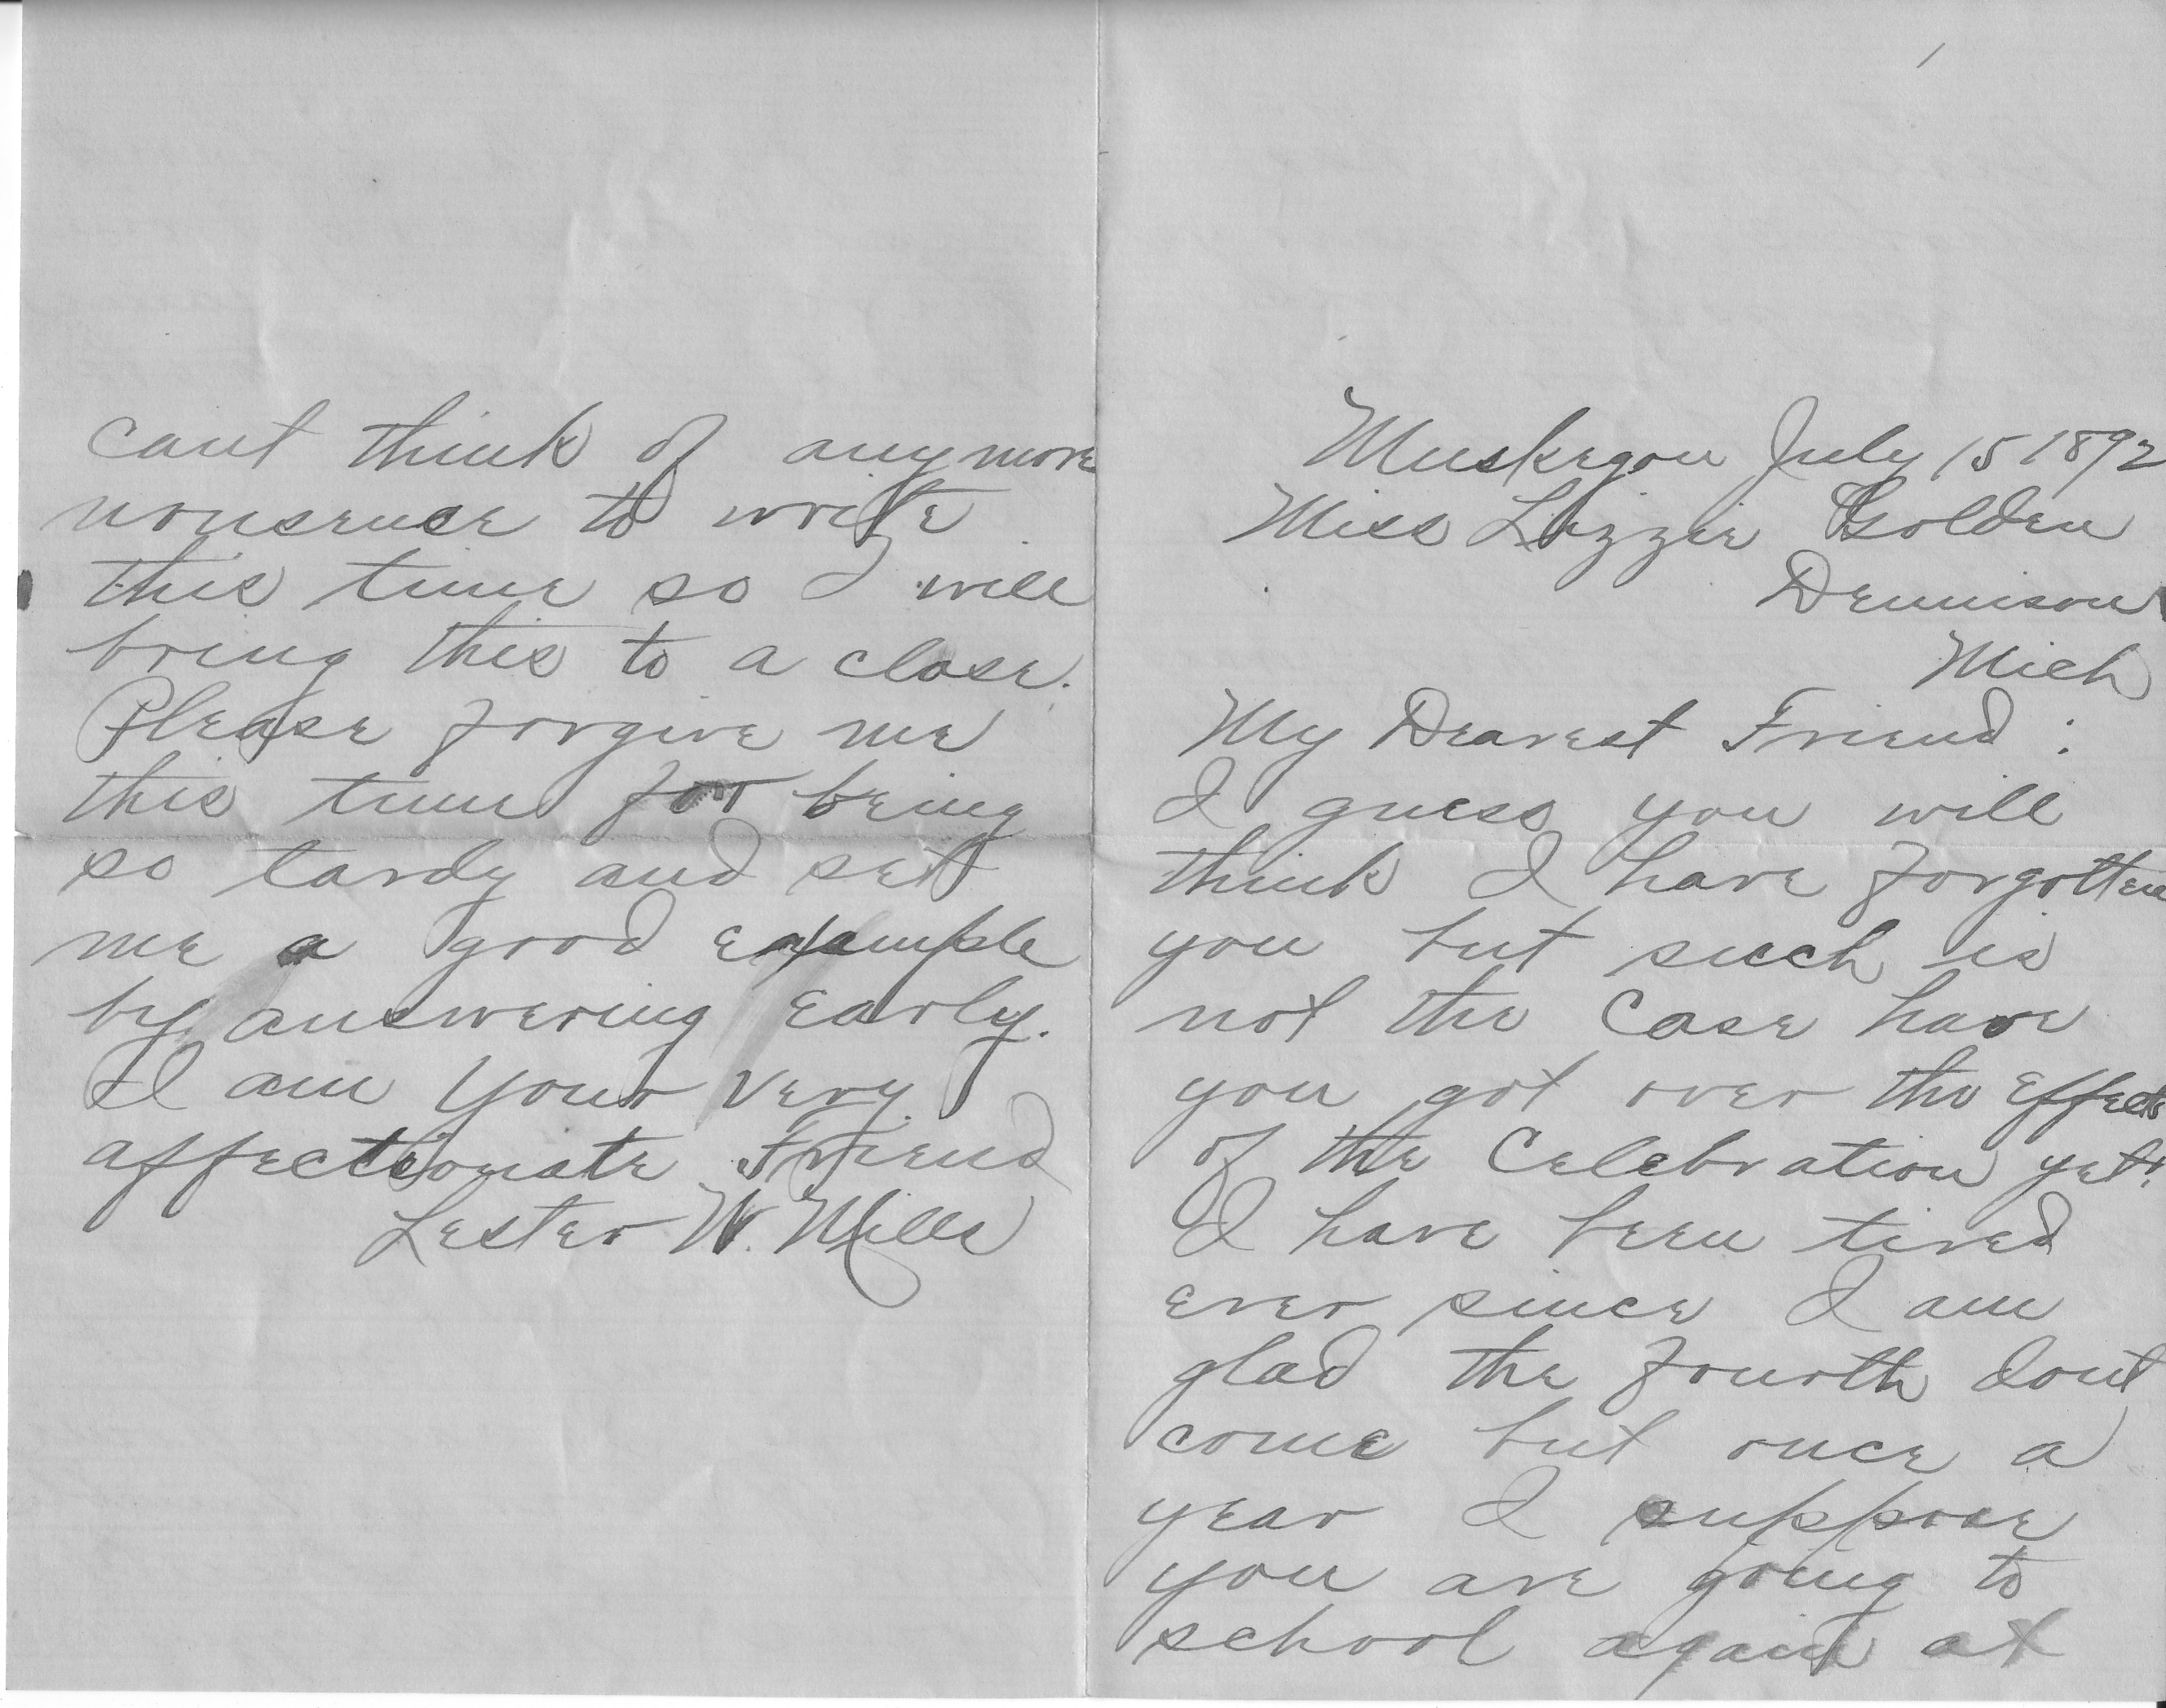 Muskegon July 15 1892
Miss Lizzie Golden
Dennison
Mich
My Dearest Friend :
I guess you will
think I have forgotten
you but such is
not the Case have
you got over the Effects
of the Celebration yet?
I have been tired
ever since I am
glad the fourth dont
come but once a
year I suppose
you are going to
school again at
cant think of anymore
nonsence to write
this time so I will
bring this to a close.
Please forgive me
this time for being
so tardy and set
me a good example
by answering Early.
I am Your Very
affectionate Friend
Lester W. Mills